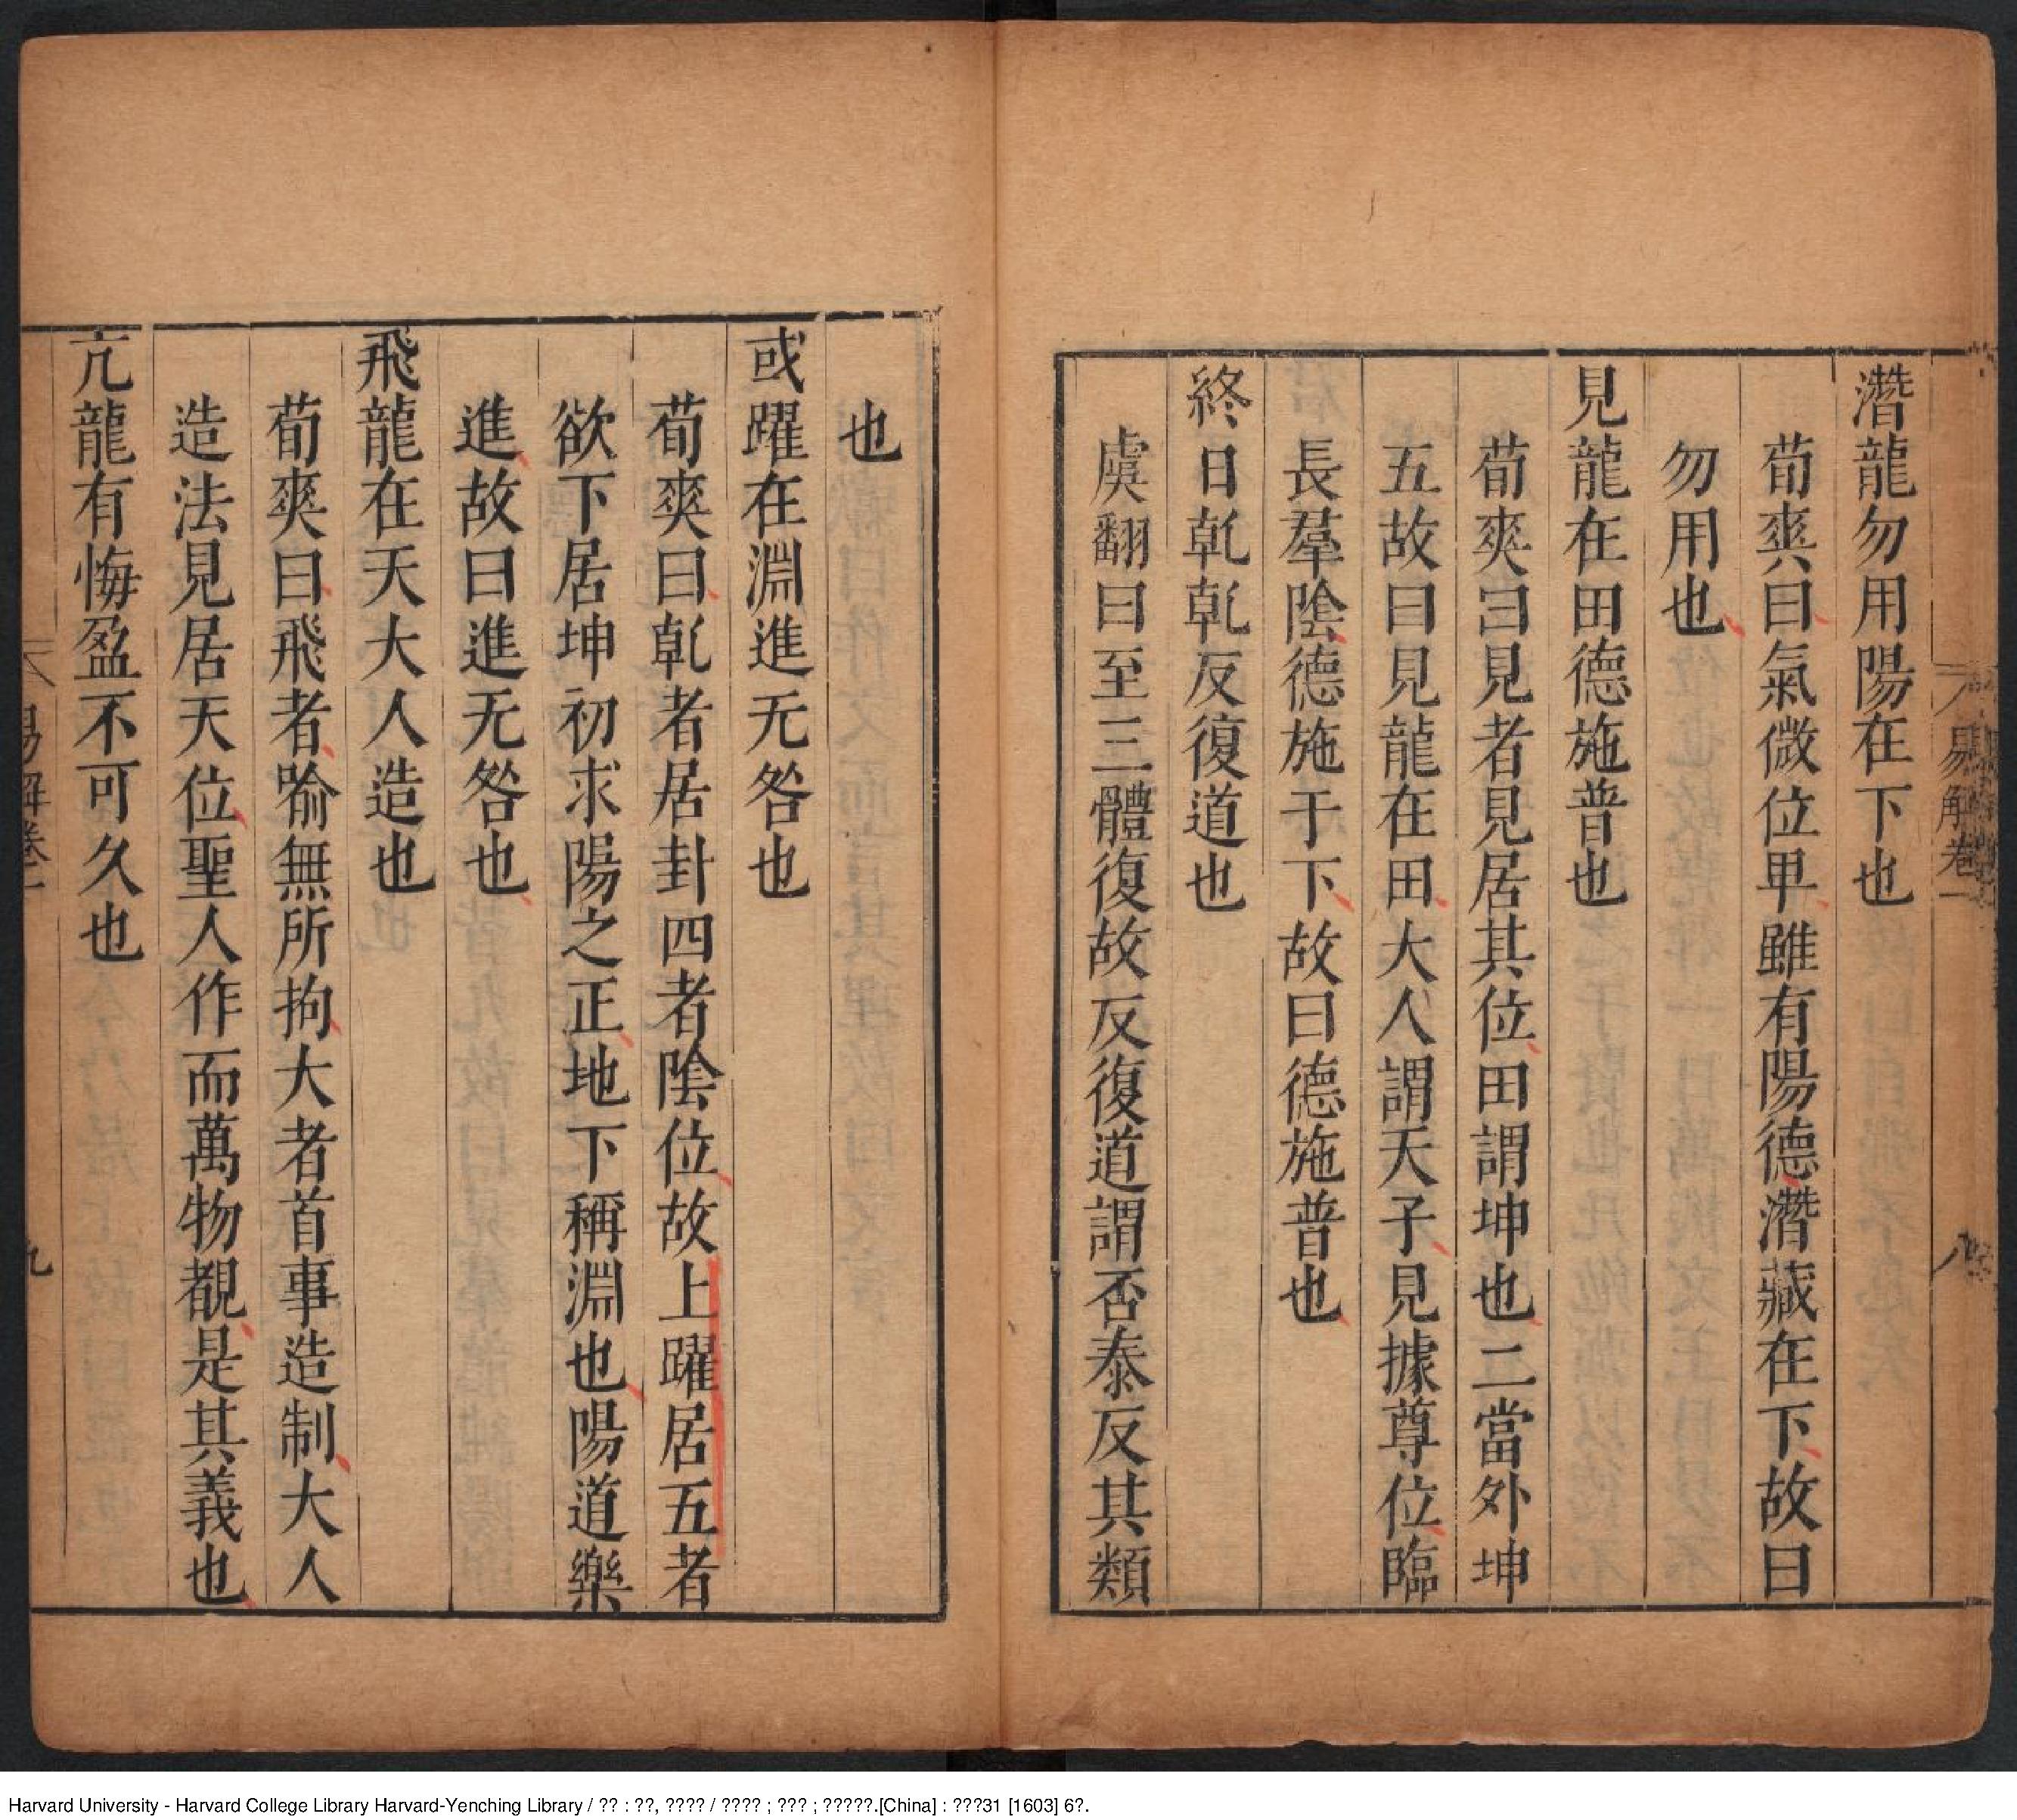 易解卷一
八
潛龍勿用陽在下也
荀爽曰氣微位卑雖有陽德潛藏在下故曰
勿用也
見龍在田德施普也
荀爽曰見者見居其位田謂坤也二當外坤
五故曰見龍在田大人謂天子見據尊位臨
長羣陰德施于下故曰德施普也
終日乹乹反復道也
虞翻曰至三體復故反復道謂否泰反其類
也
或躍在淵進无咎也
荀爽曰乹者居卦四者陰位故上躍居五者
欲下居坤初求陽之正地下稱淵也陽道樂
進故曰進无咎也
飛龍在天大人造也
荀爽曰飛者喻無所拘大者首事造制大人
造法見居天位聖人作而萬物覩是其義也
亢龍有悔盈不可久也
易解卷一
九
Harvard University - Harvard College Library Harvard-Yenching Library / ?? : ??, ???? / ???? ; ??? ; ?????.[China] : ???31 [1603] 6?.